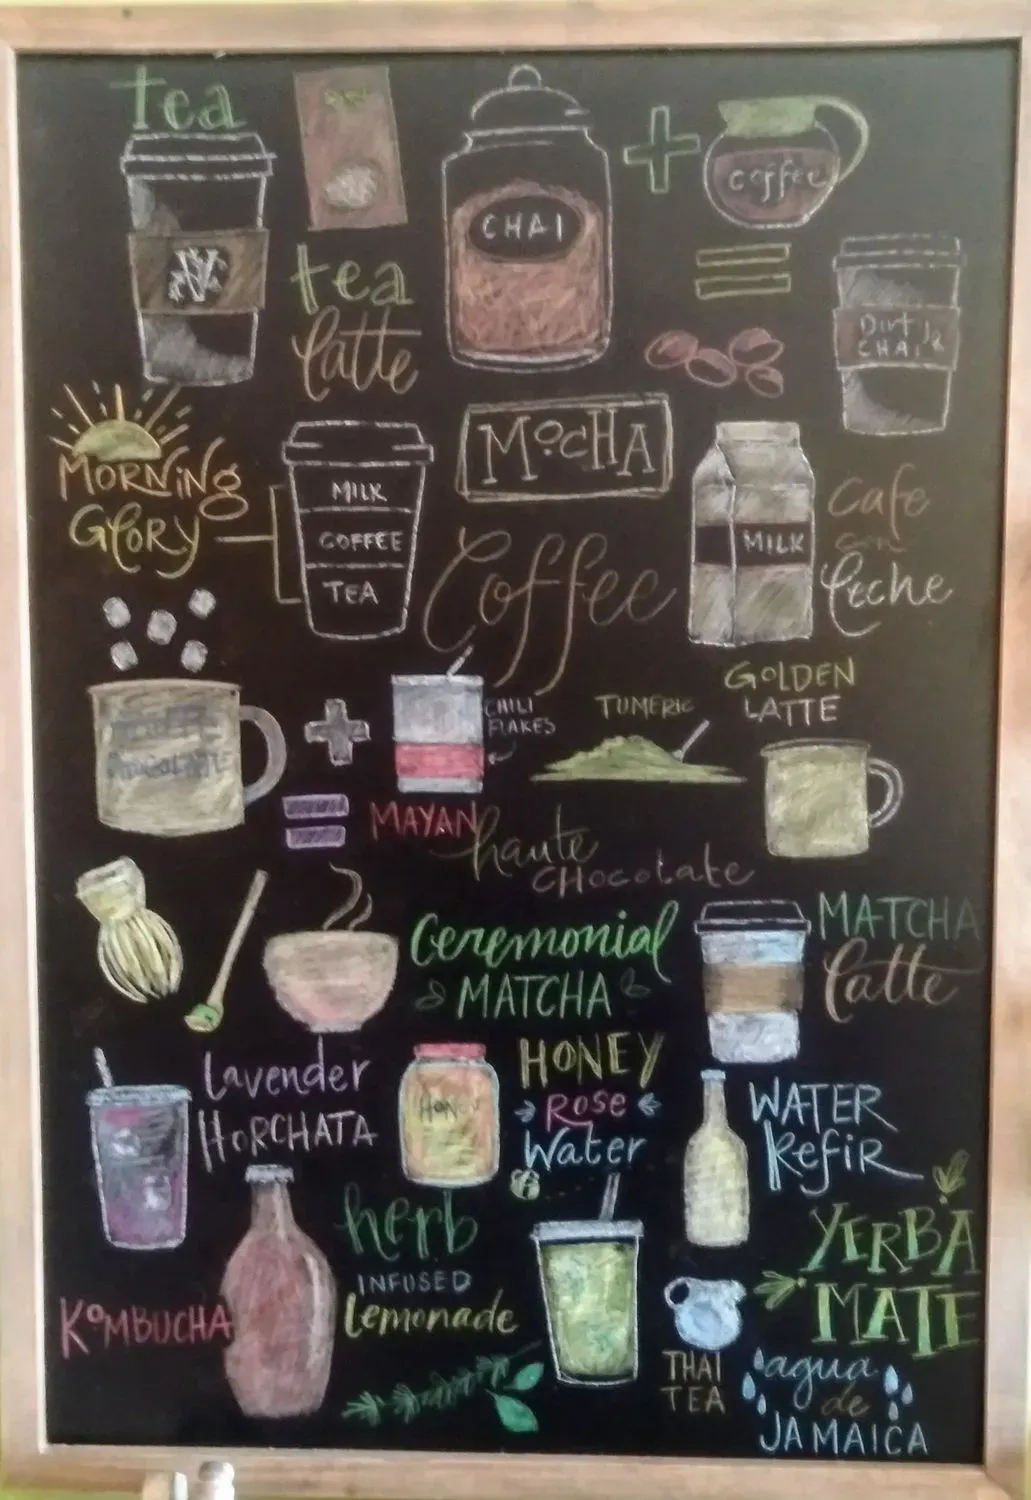 tea
tea
latte
CHAI
+
coffee
=
Dirty
CHAI
MORNING
GLORY
MILK
COFFEE
TEA
MOCHA
Coffee
MILK
Cafe
con
leche
+
CHILI
FLAKES
=
MAYAN
haute
CHocolate
TUMERIC
GOLDEN
LATTE
Ceremonial
MATCHA
MATCHA
latte
Lavender
HORCHATA
HONEY
HONEY
Rose
Water
WATER
KefiR
KOMBUCHA
herb
INFUSED
Lemonade
YERBA
MATE
THAI
TEA
agua
de
JAMAICA